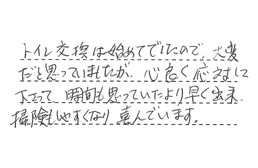 トイレ交換は始めてでしたので、大変
だと思っていましたが、心良く応対して
下さって、時間も思っていたより早く出来
掃除もしやすくなり喜んでいます。